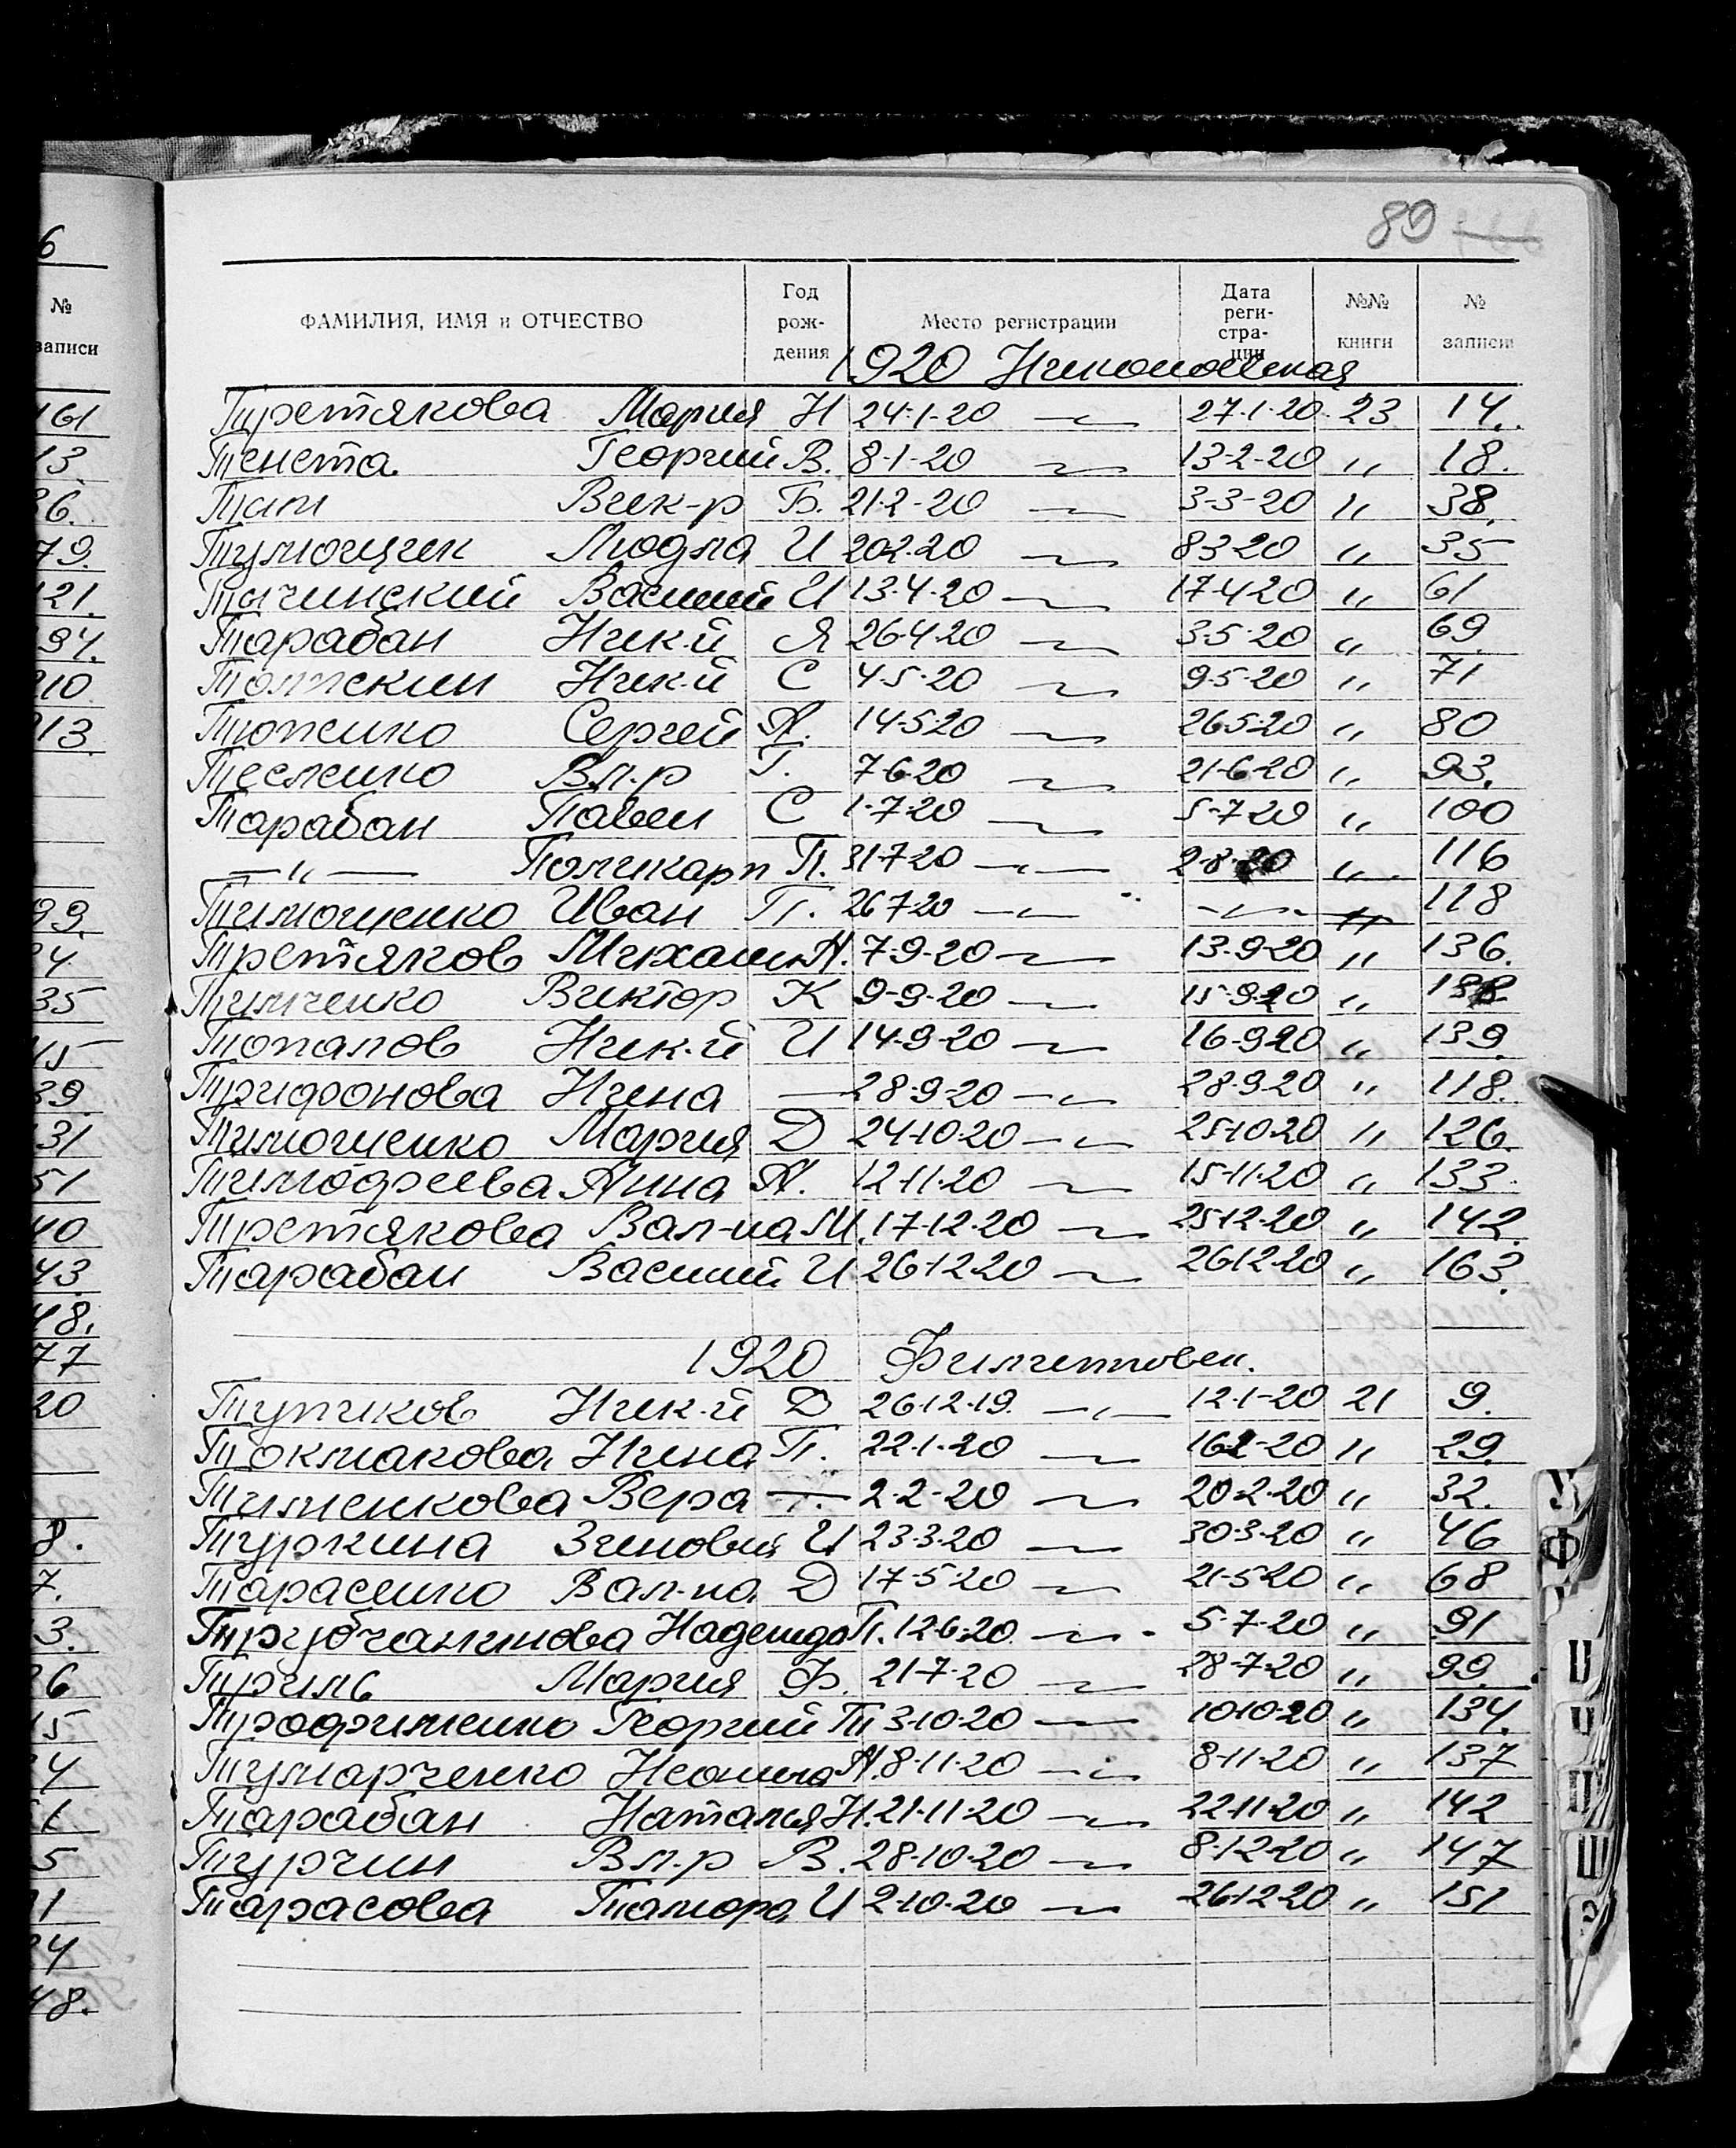 89
6
№ записи
ФАМИЛИЯ, ИМЯ и ОТЧЕСТВО Год рож- дения Место регистрации Дата реги- стра- ции №№ книги № записи
1920
161 Третякова Мария Н 24-1-20 27-1-20 23 14.
13. Тенета Георгий В. 8-1-20 13-2-20 〃 18.
36. Вик-р Б. 21-2-20 3-3-20 〃 38.
79. Людмла И 20-2-20 8320 〃 35
121. Тачинский Василий И 13-4-20 17-4-20 〃 61
94. Тарабан Ник-й Я 26-4-20 3-5-20 〃 69
210. Ник-й С 4-5-20 9-5-20 〃 71
213. Сергей А. 14-5-20 26-5-20 〃 80
Тесленко Вл-р Г. 7-6-20 21-6-20 〃 93.
Тарабан Павел С 1-7-20 5-7-20 〃 100
—〃— Поликарп П. 31-7-20 2-8-20 〃 116
99. Тимошенко Иван П. 26720 —〃— 〃 118
Третяков Михаил А. 7-9-20 13-9-20 〃 136.
35 Тимченко Виктор К 9-9-20 15-9-20 〃
15 Топалов Ник-й И 14-9-20 16-9-20 〃 139.
39. Трифонова Нина — 28-9-20 28-9-20 〃 118.
31 Тимошенко Мария Д 24-10-20 25-10-20 〃 126.
51 Тимофеева Анна А. 12-11-20 15-11-20 〃 133.
40 Третякова Вал-на М. 17-12-20 25-12-20 〃 142.
43. Тарабан Василий И 26-12-20 26-12-20 〃 163.
48.
77 1920 Филиповск.
20 Тупиков Ник-й Д 26-12-19. 12-1-20 21 9.
Токмакова Нина П. 22-1-20 20 〃 29.
Тименкова Вера 2-2-20 20-2-20 〃 32.
8. Туркина Зиновия И 23-3-20 30-3-20 〃 46
7. Тарасенко Вал-на Д 17-5-20 21-5-20 〃 68
3. Надежда П. 12-6-20 5-7-20 〃 91
6 Триль Мария Ф. 21-7-20 28-7-20 〃 99.
15 Трофименко Георгий Т 3-10-20 10-10-20 〃 134.
4 Тумарченко Неонила А. 8-11-20 8-11-20 〃 137
1 Тарабан Наталья Н. 21-11-20 22-11-20 〃 142
5 Турчин Вл-р В. 28-10-20 8-12-20 〃 147
1 Тарасова Тамара И 2-10-20 26-12-20 〃 151
4
48.
У
Ф
Ш